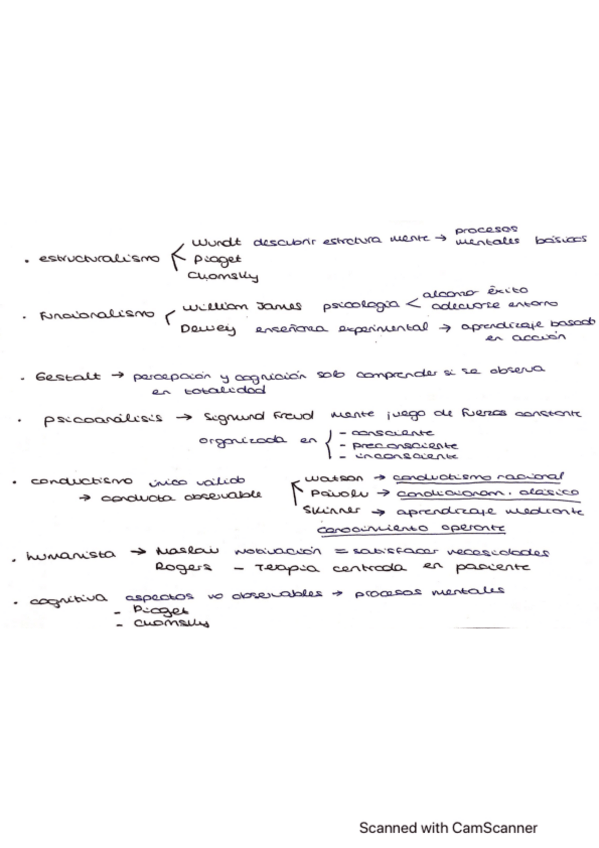 · estructuralismo
Wundt descubrir estrctura mente → procesos mentales básicos
Piaget
Chomsky
· Funcionalismo
William James psicologia < alcanzar éxito
adecuarse entorno
Dewey enseñanza experimental → aprendizaje basado
en acción
· Gestalt → percepción y cognición solo comprender si se observa
en totalidad
· psicoanálisis → Sigmund Freud mente juego de fuerzas constante
organizada en
- consciente
- preconsciente
- inconsciente
· conductismo único válido
→ conducta observable
Watson → conductismo racional
Paivolv → condicionam. clásico
Skinner → aprendizaje mediante
conocimiento operante
· humanista → Maslow motivación = satisfacer necesidades
Rogers - Terapia centrada en paciente
· cognitiva aspectos no observables → procesos mentales
- Piaget
- Chomsky
Scanned with CamScanner